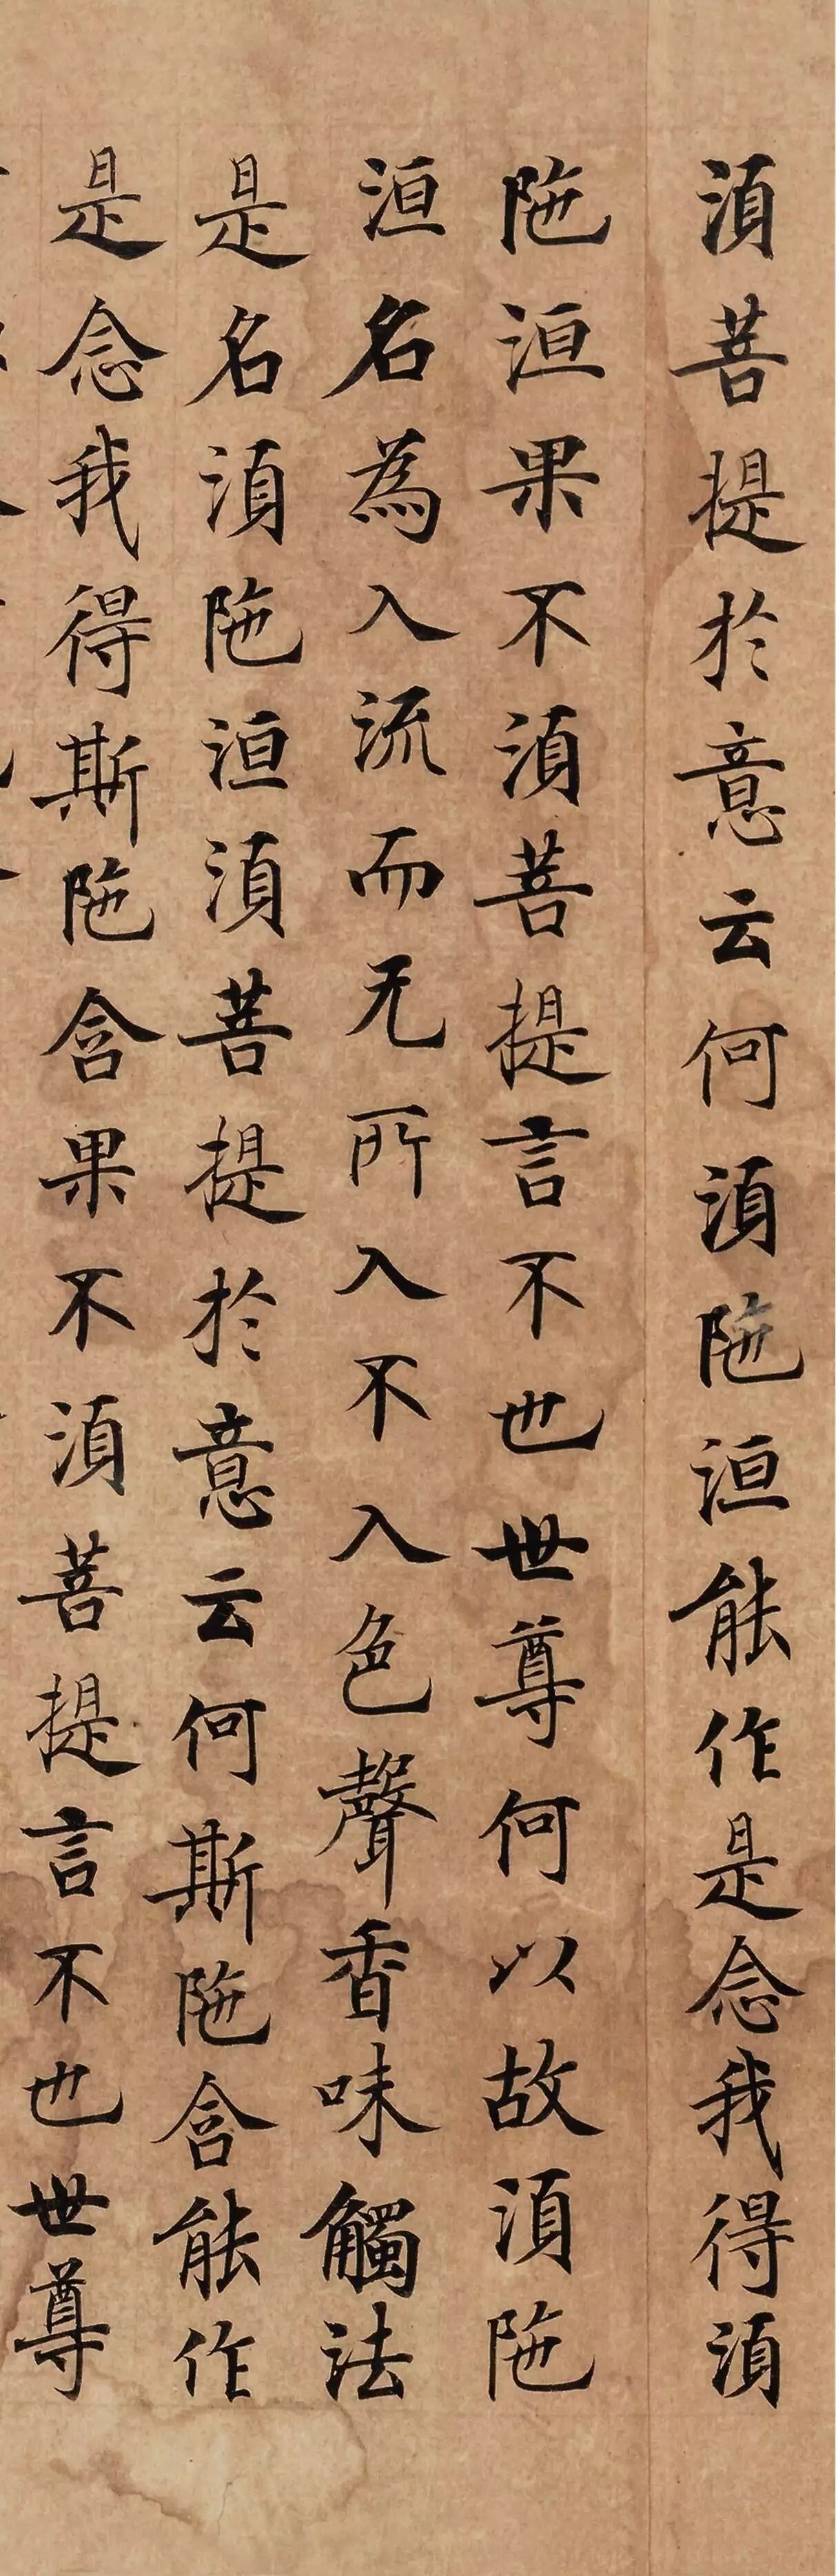 湏菩提扵意云何湏陁洹能作是念我得湏
陁洹果不湏菩提言不也世尊何以故湏陁
洹名為入流而无所入不入色聲香味觸法
是名湏陁洹湏菩提扵意云何斯陁含能作
是念我得斯陁含果不湏菩提言不也世尊